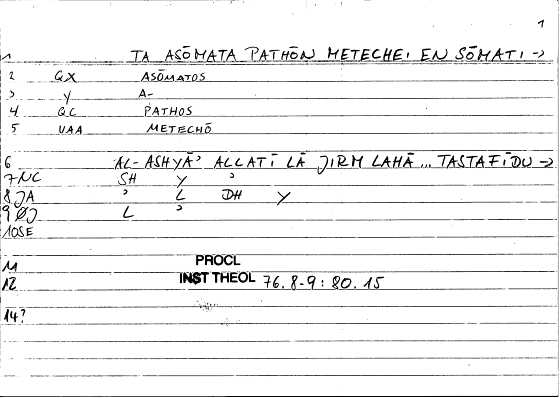 1
1 TA ASŌMATA PATHŌN METECHEI EN SŌMATI →
2 QX ASŌMATOS
3 Y A-
4 QC PATHOS
5 UAA METECHŌ
6 AL-ASHYĀʾ ALLATĪ LĀ JIRM LAHĀ... TASTAFĪDU →
7 NC SH Y ʾ
8 JA ʾ L DH Y
9 ØJ L ʾ
10 SE
11 PROCL
12 INST THEOL 76.8-9 : 80.15
14?